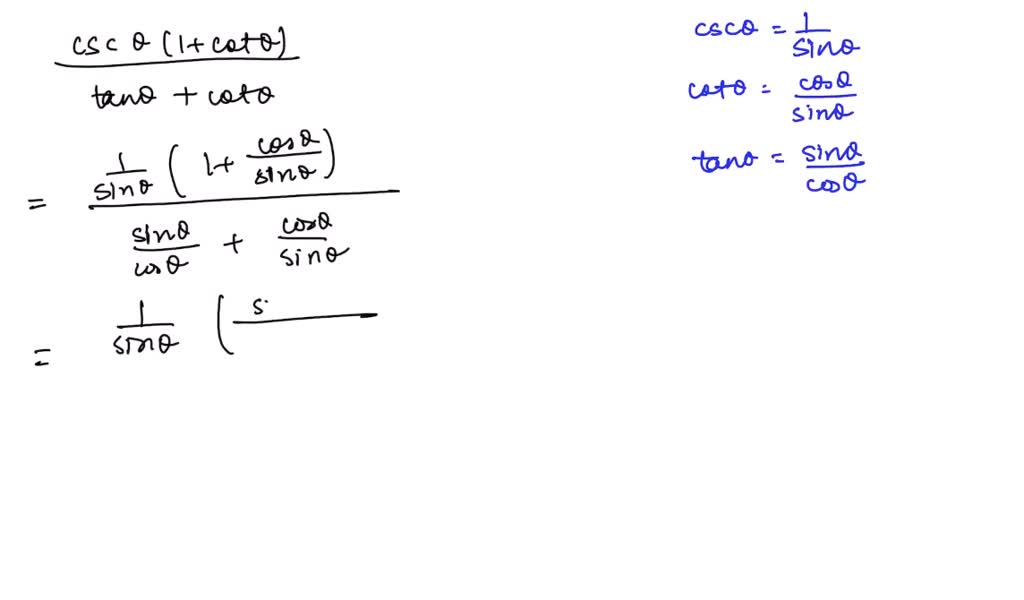 csc θ (1 + cot θ) / tan θ + cot θ
= 1/sin θ (1 + cos θ/sin θ) / sin θ/cos θ + cos θ/sin θ
= 1/sin θ ( s
csc θ = 1/sin θ
cot θ = cos θ/sin θ
tan θ = sin θ/cos θ